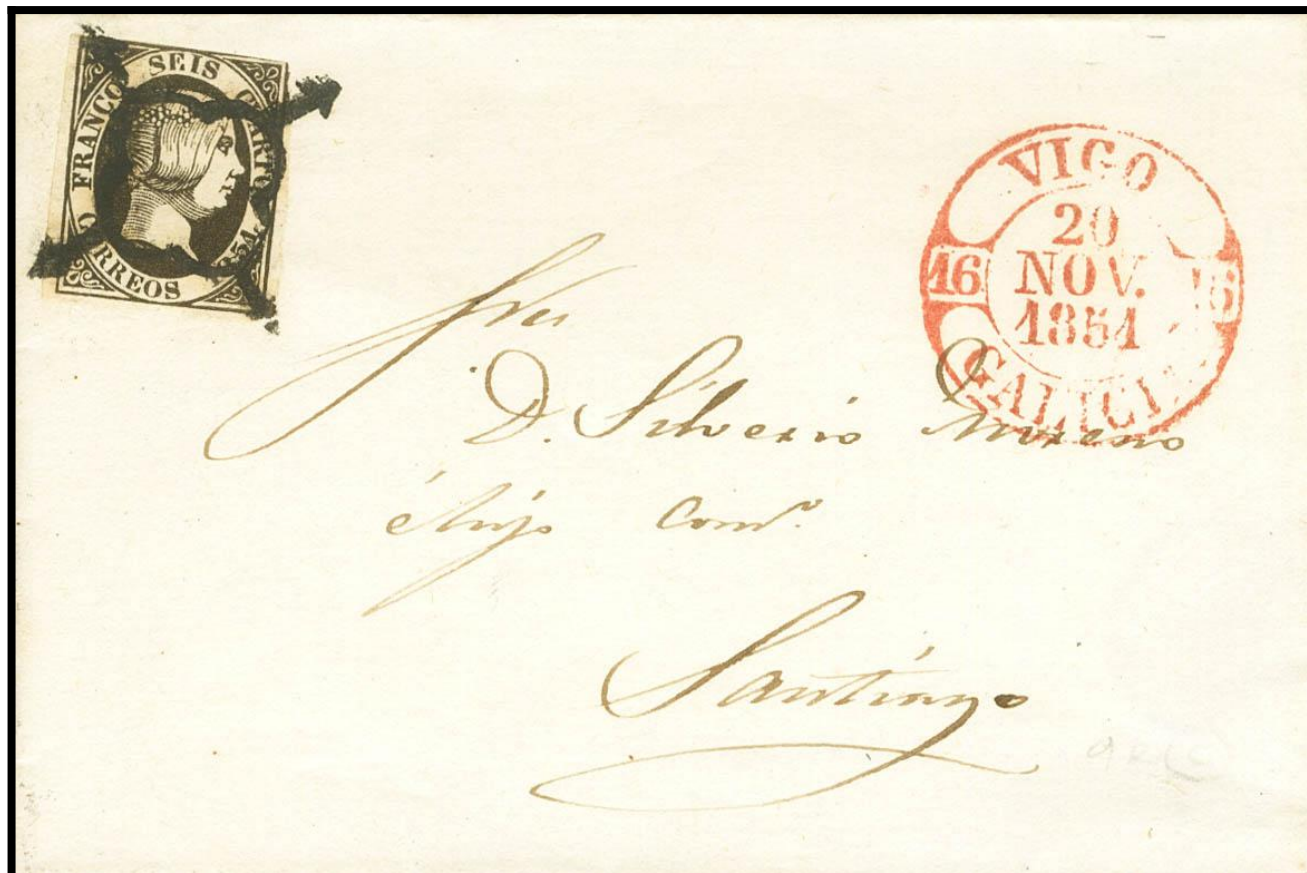 FRANCO SEIS CUARTOS
CORREOS 1851
VIGO
20
NOV.
1851
16 16
GALICIA
D. Silverio Moreno
é hijo Comº
Santiago